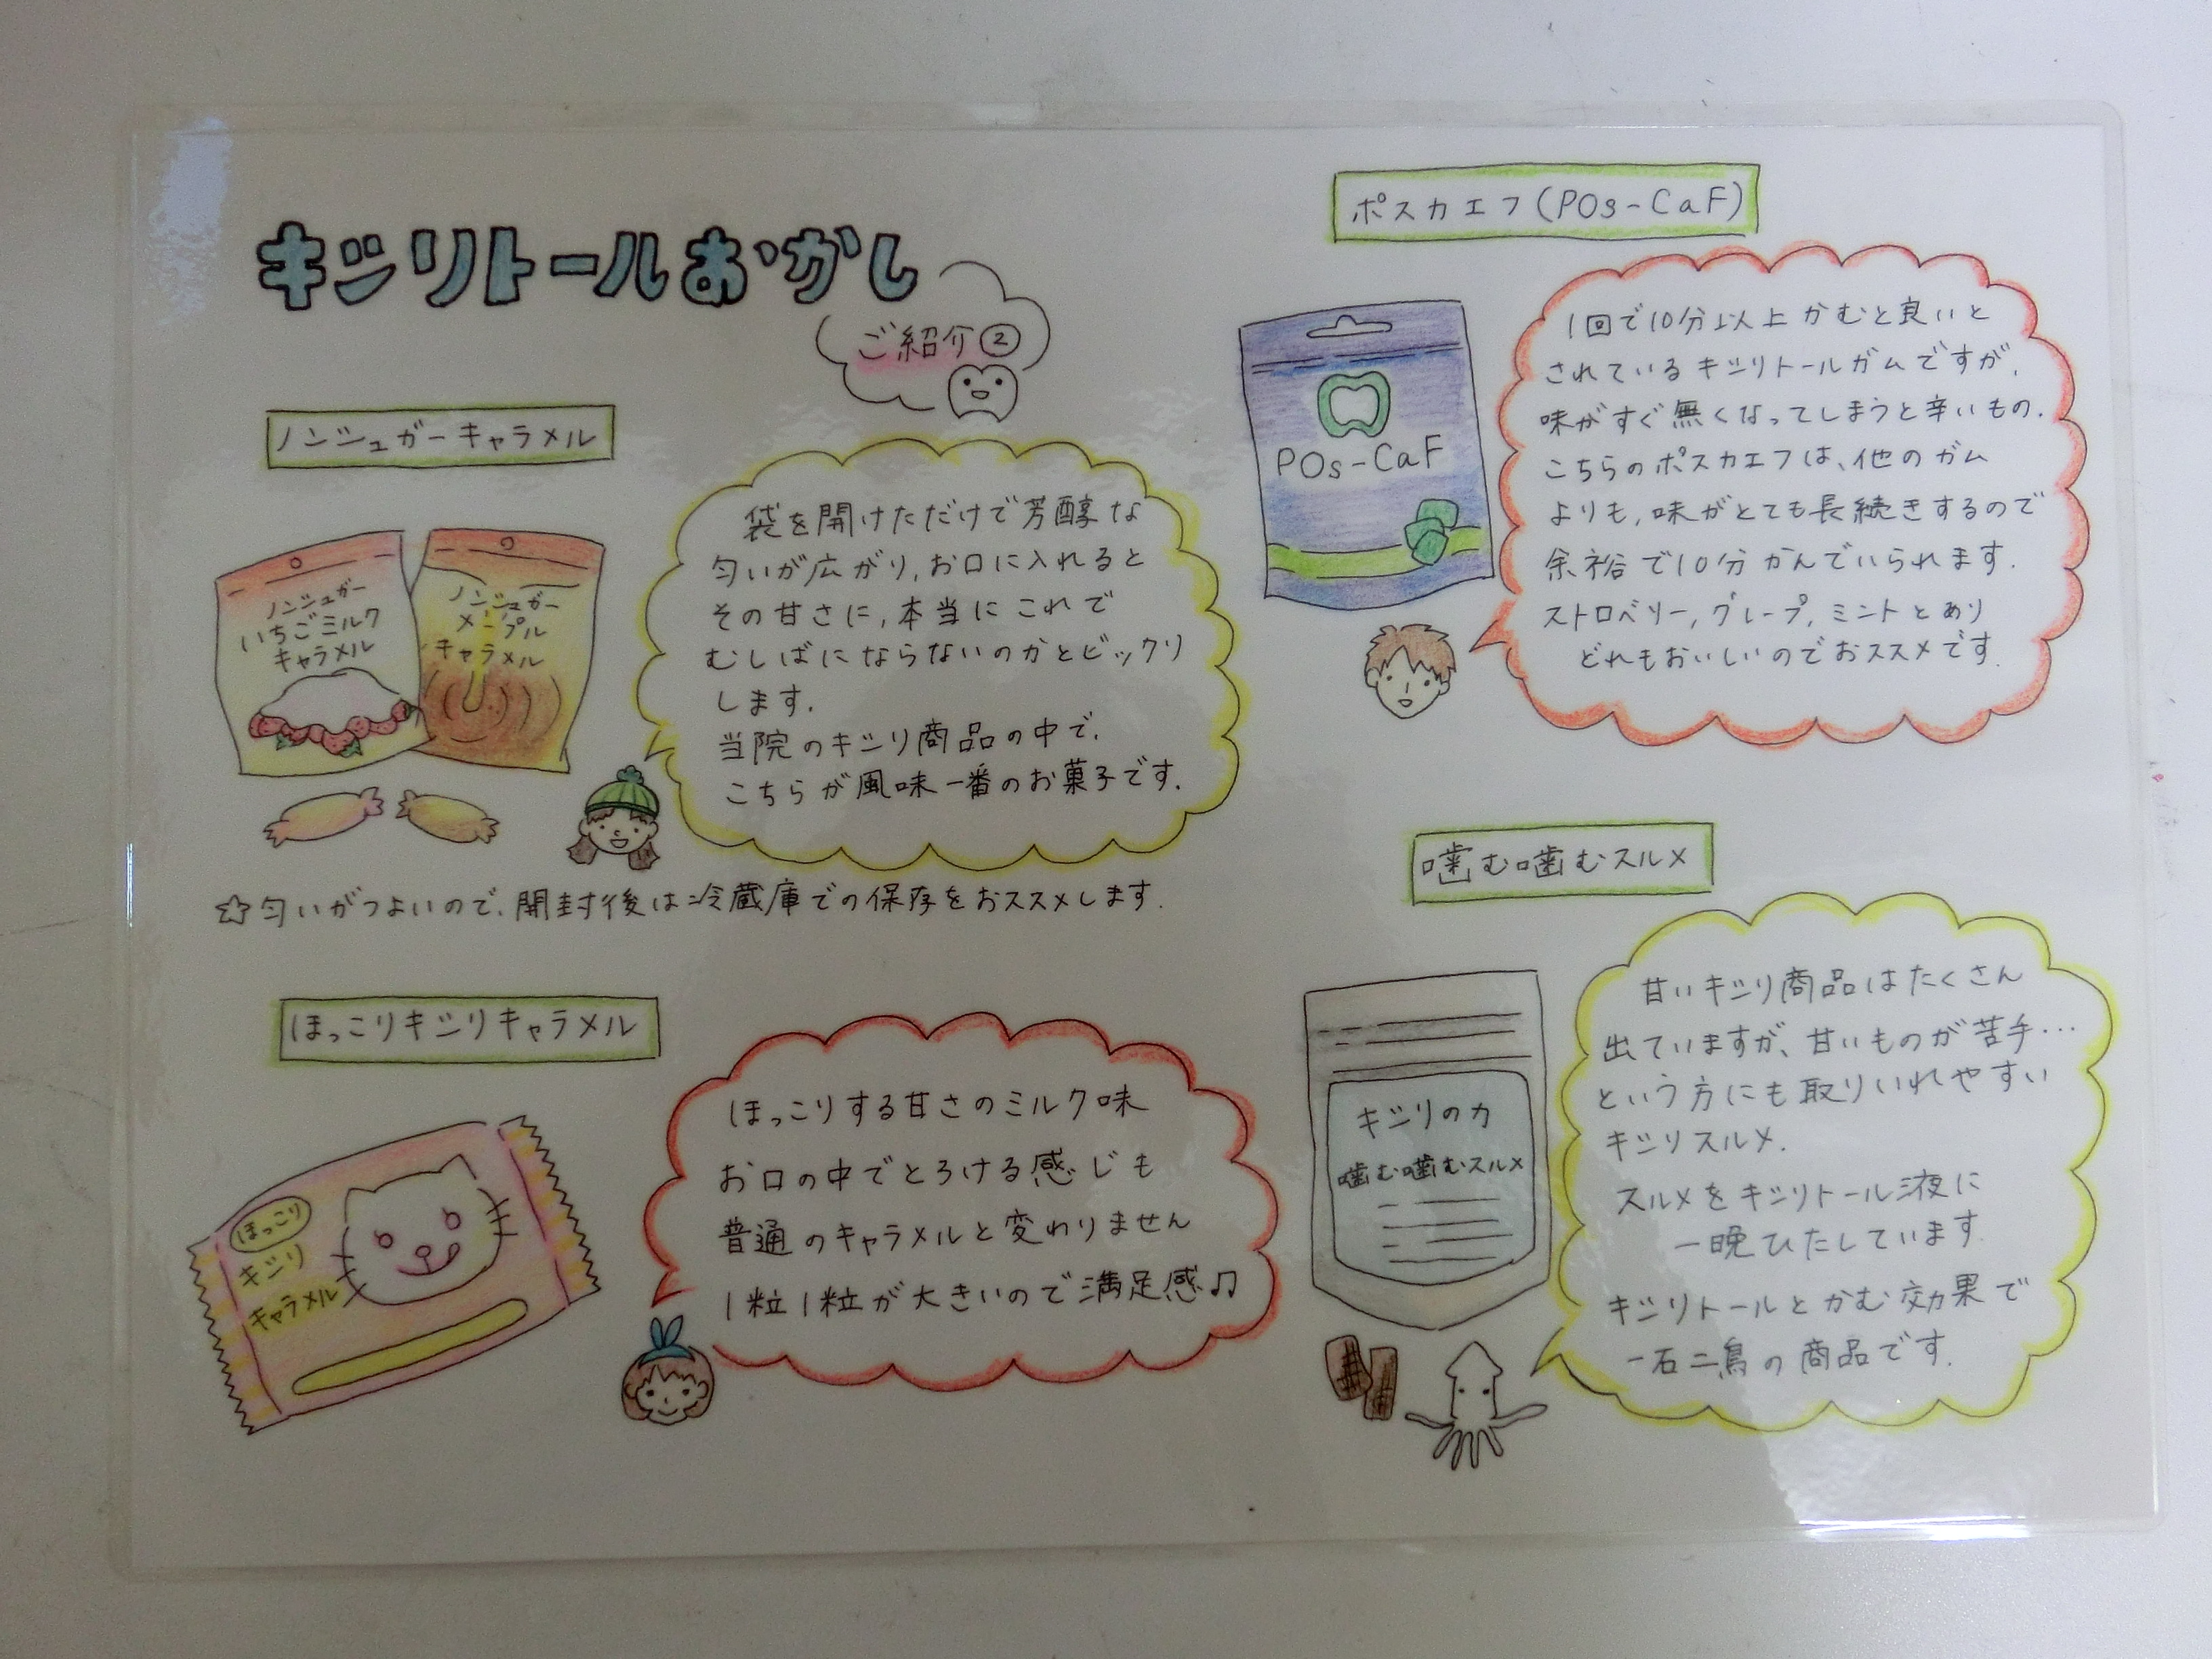 キシリトールおかし
ご紹介②
ノンシュガーキャラメル
ノンシュガー
いちごミルク
キャラメル
ノンシュガー
メープル
キャラメル
袋を開けただけで芳醇な
匂いが広がり,お口に入れると
その甘さに,本当にこれで
むしばにならないのかとビックリ
します.
当院のキシリ商品の中で,
こちらが風味一番のお菓子です.
☆匂いがつよいので、開封後は冷蔵庫での保存をおススメします.
ほっこりキシリキャラメル
ほっこり
キシリ
キャラメル
ほっこりする甘さのミルク味
お口の中でとろける感じも
普通のキャラメルと変わりません
1粒1粒が大きいので満足感♫
ポスカエフ(POs-CaF)
POs-CaF
1回で10分以上かむと良いと
されているキシリトールガムですが,
味がすぐ無くなってしまうと辛いもの.
こちらのポスカエフは、他のガム
よりも,味がとても長続きするので
余裕で10分かんでいられます.
ストロベリー,グレープ,ミントとあり
どれもおいしいのでおススメです.
噛む噛むスルメ
キシリの力
噛む噛むスルメ
甘いキシリ商品はたくさん
出ていますが、甘いものが苦手…
という方にも取りいれやすい
キシリスルメ.
スルメをキシリトール液に
一晩ひたしています.
キシリトールとかむ効果で
一石二鳥の商品です.